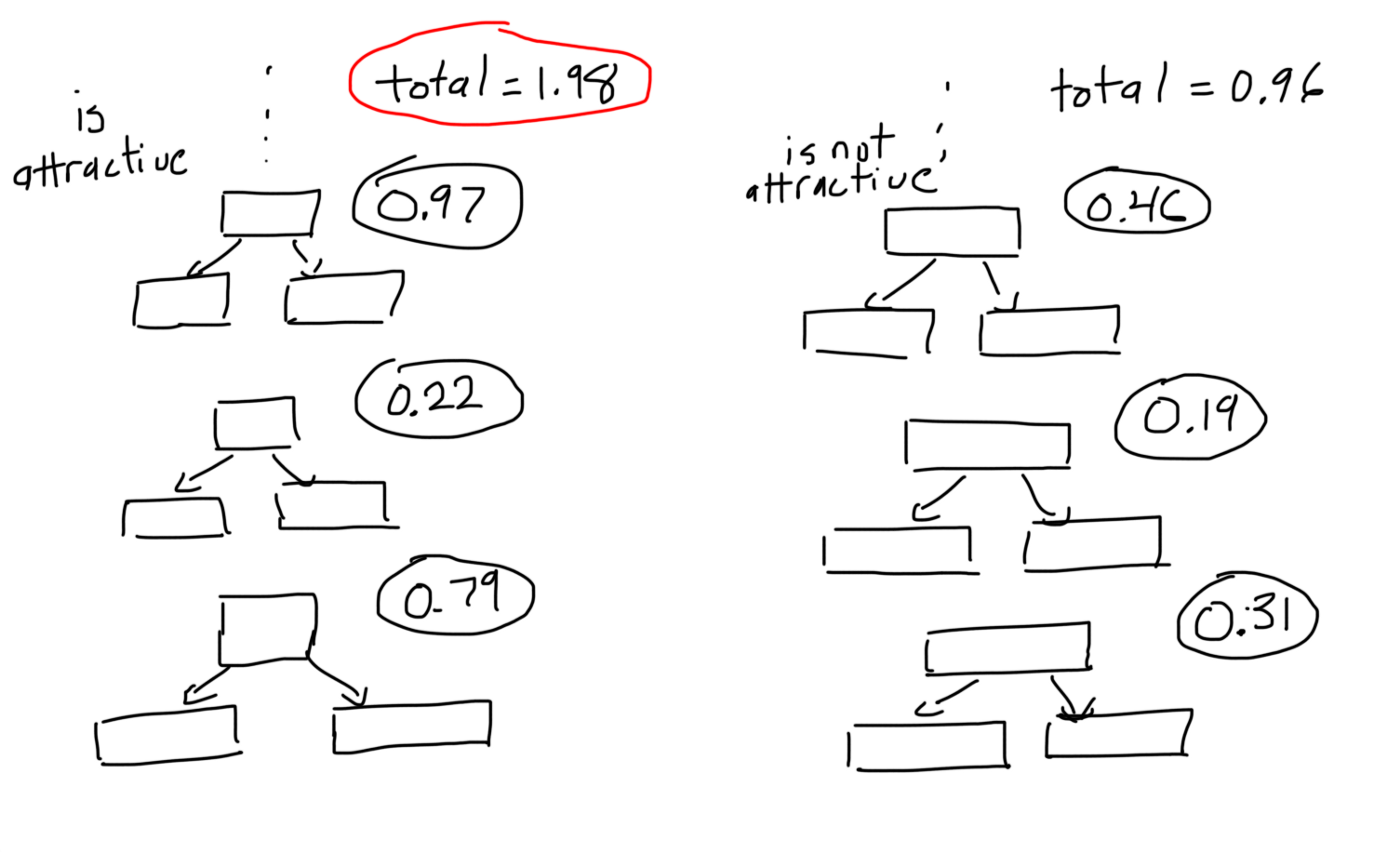 is
attractive
total = 1.98
0.97
0.22
0.79
is not
attractive
total = 0.96
0.46
0.19
0.31